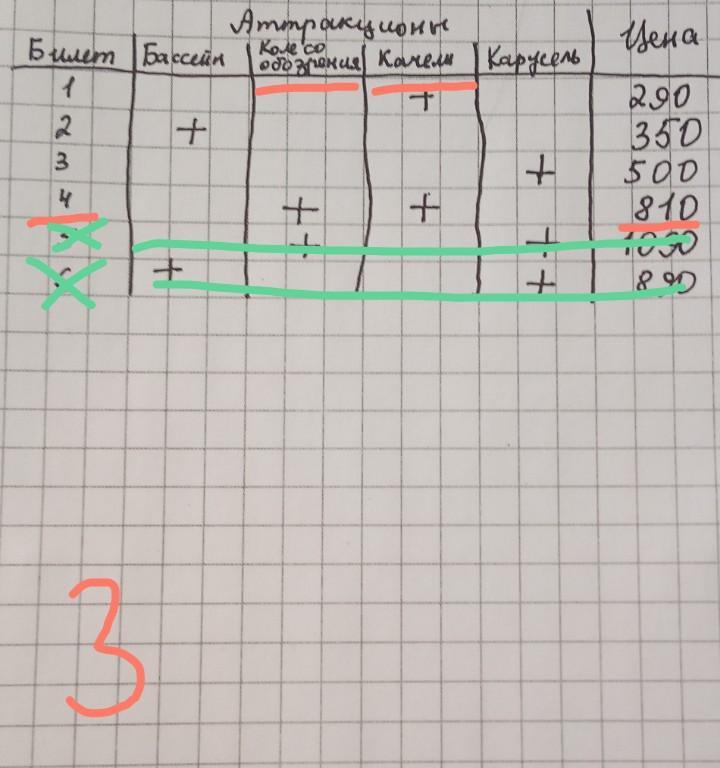 Аттракционы
Билет Бассейн Колесо обозрения Качели Карусель Цена
1 + 290
2 + 350
3 + 500
4 + + 810
+ +
+ + 890
3